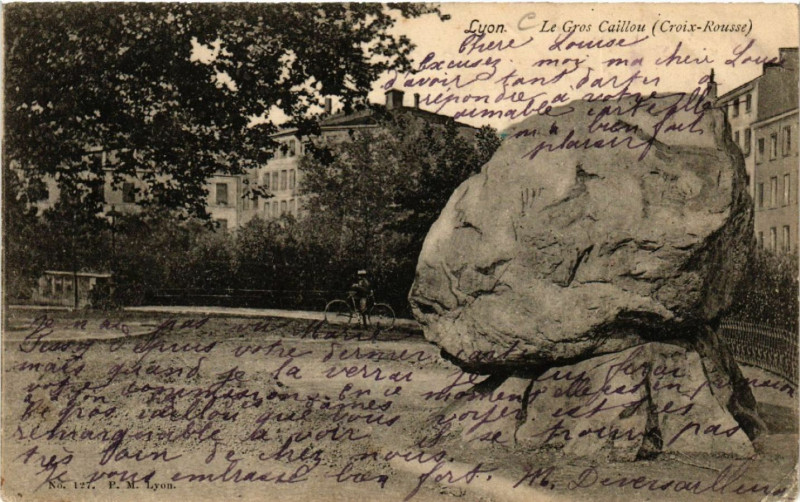 Lyon. Le Gros Caillou (Croix-Rousse)
Chère Louise
Excusez moi ma chère Louise
d'avoir tant
répondre à votre
aimable carte elle
m'a bien fait
plaisir
Je n'ai pas vu Marie
depuis votre dernier carte
mais quand je la verrai je lui ferai
votre commission. En ce moment elle est in
à Lyon
Ce gros caillou que vous voyez est très
remarquable à voir il se trouve pas
très loin de chez nous.
Je vous embrasse bien fort. M.
No. 127. P. M. Lyon.